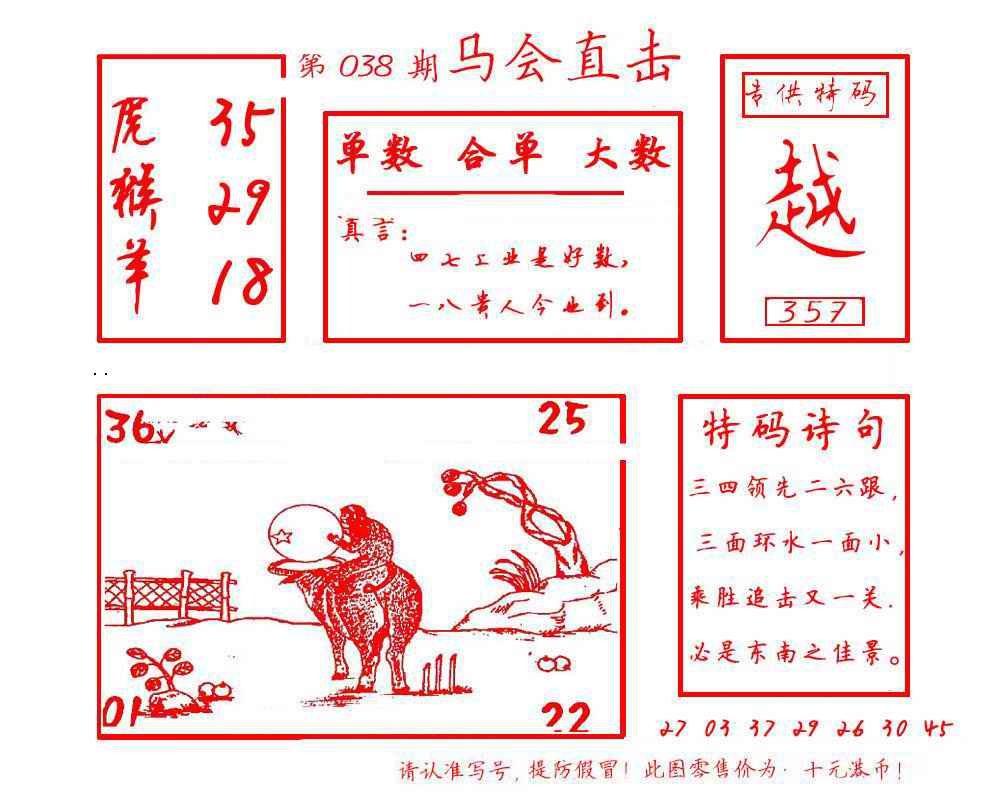 第 038 期 马会直击
虎 35
猴 29
羊 18
单数 合单 大数
真言：
四七工业是好数，
一八贵人今业到。
专供特码
越
357
36
25
01
22
特码诗句
三四领先二六跟，
三面环水一面小，
乘胜追击又一关.
必是东南之佳景。
27 03 37 29 26 30 45
请认准写号，提防假冒！此图零售价为·十元港币！